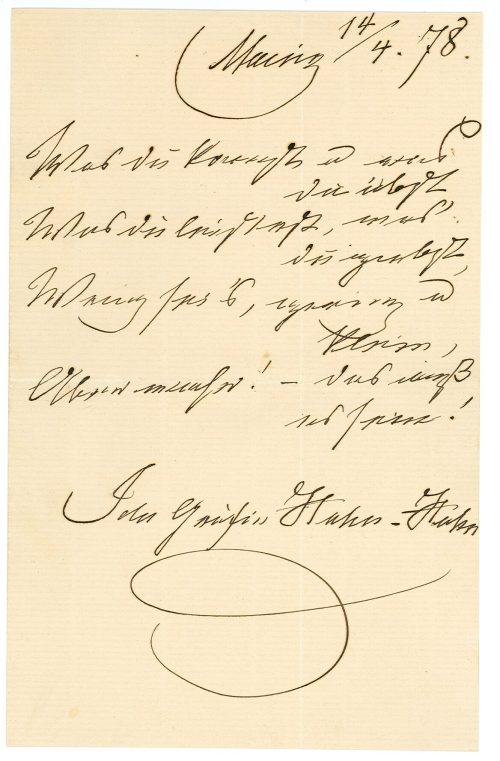 Mainz 14/4. 78.
Was du trägst u was
du übst
Was du leistest, was
du giebst,
Wenig sei's, gering u
klein,
Aber wahr! – das muß
es sein!
Ida Gräfin Hahn-Hahn